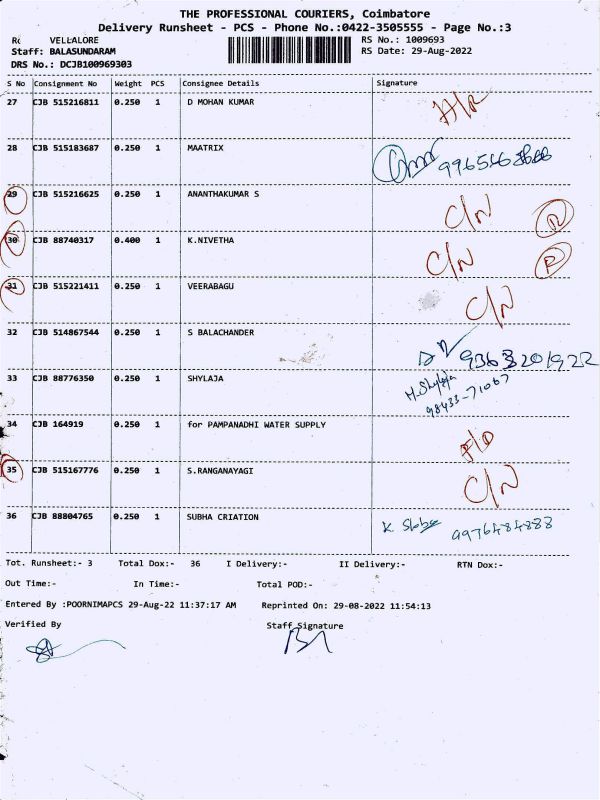 THE PROFESSIONAL COURIERS, Coimbatore
Delivery Runsheet - PCS - Phone No.:0422-3505555 - Page No.:3
VELLALORE RS No.: 1009693
Staff: BALASUNDARAM RS Date: 29-Aug-2022
DRS No.: DCJB100969303
S No Consignment No Weight PCS Consignee Details Signature
27 CJB 515216811 0.250 1 D MOHAN KUMAR H/R
28 CJB 515183687 0.250 1 MAATRIX
29 CJB 515216625 0.250 1 ANANTHAKUMAR S C/N R
30 CJB 88740317 0.400 1 K.NIVETHA C/N R
31 CJB 515221411 0.250 1 VEERABAGU C/N
32 CJB 514867544 0.250 1 S BALACHANDER 9363201922
33 CJB 88776350 0.250 1 SHYLAJA M. Shylaja
98433-71067
34 CJB 164919 0.250 1 for PAMPANADHI WATER SUPPLY
35 CJB 515167776 0.250 1 S.RANGANAYAGI C/N
36 CJB 88804765 0.250 1 SUBHA CRIATION 9976484888
Tot. Runsheet:- 3 Total Dox:- 36 I Delivery:- II Delivery:- RTN Dox:-
Out Time:- In Time:- Total POD:-
Entered By :POORNIMAPCS 29-Aug-22 11:37:17 AM Reprinted On: 29-08-2022 11:54:13
Verified By Staff Signature